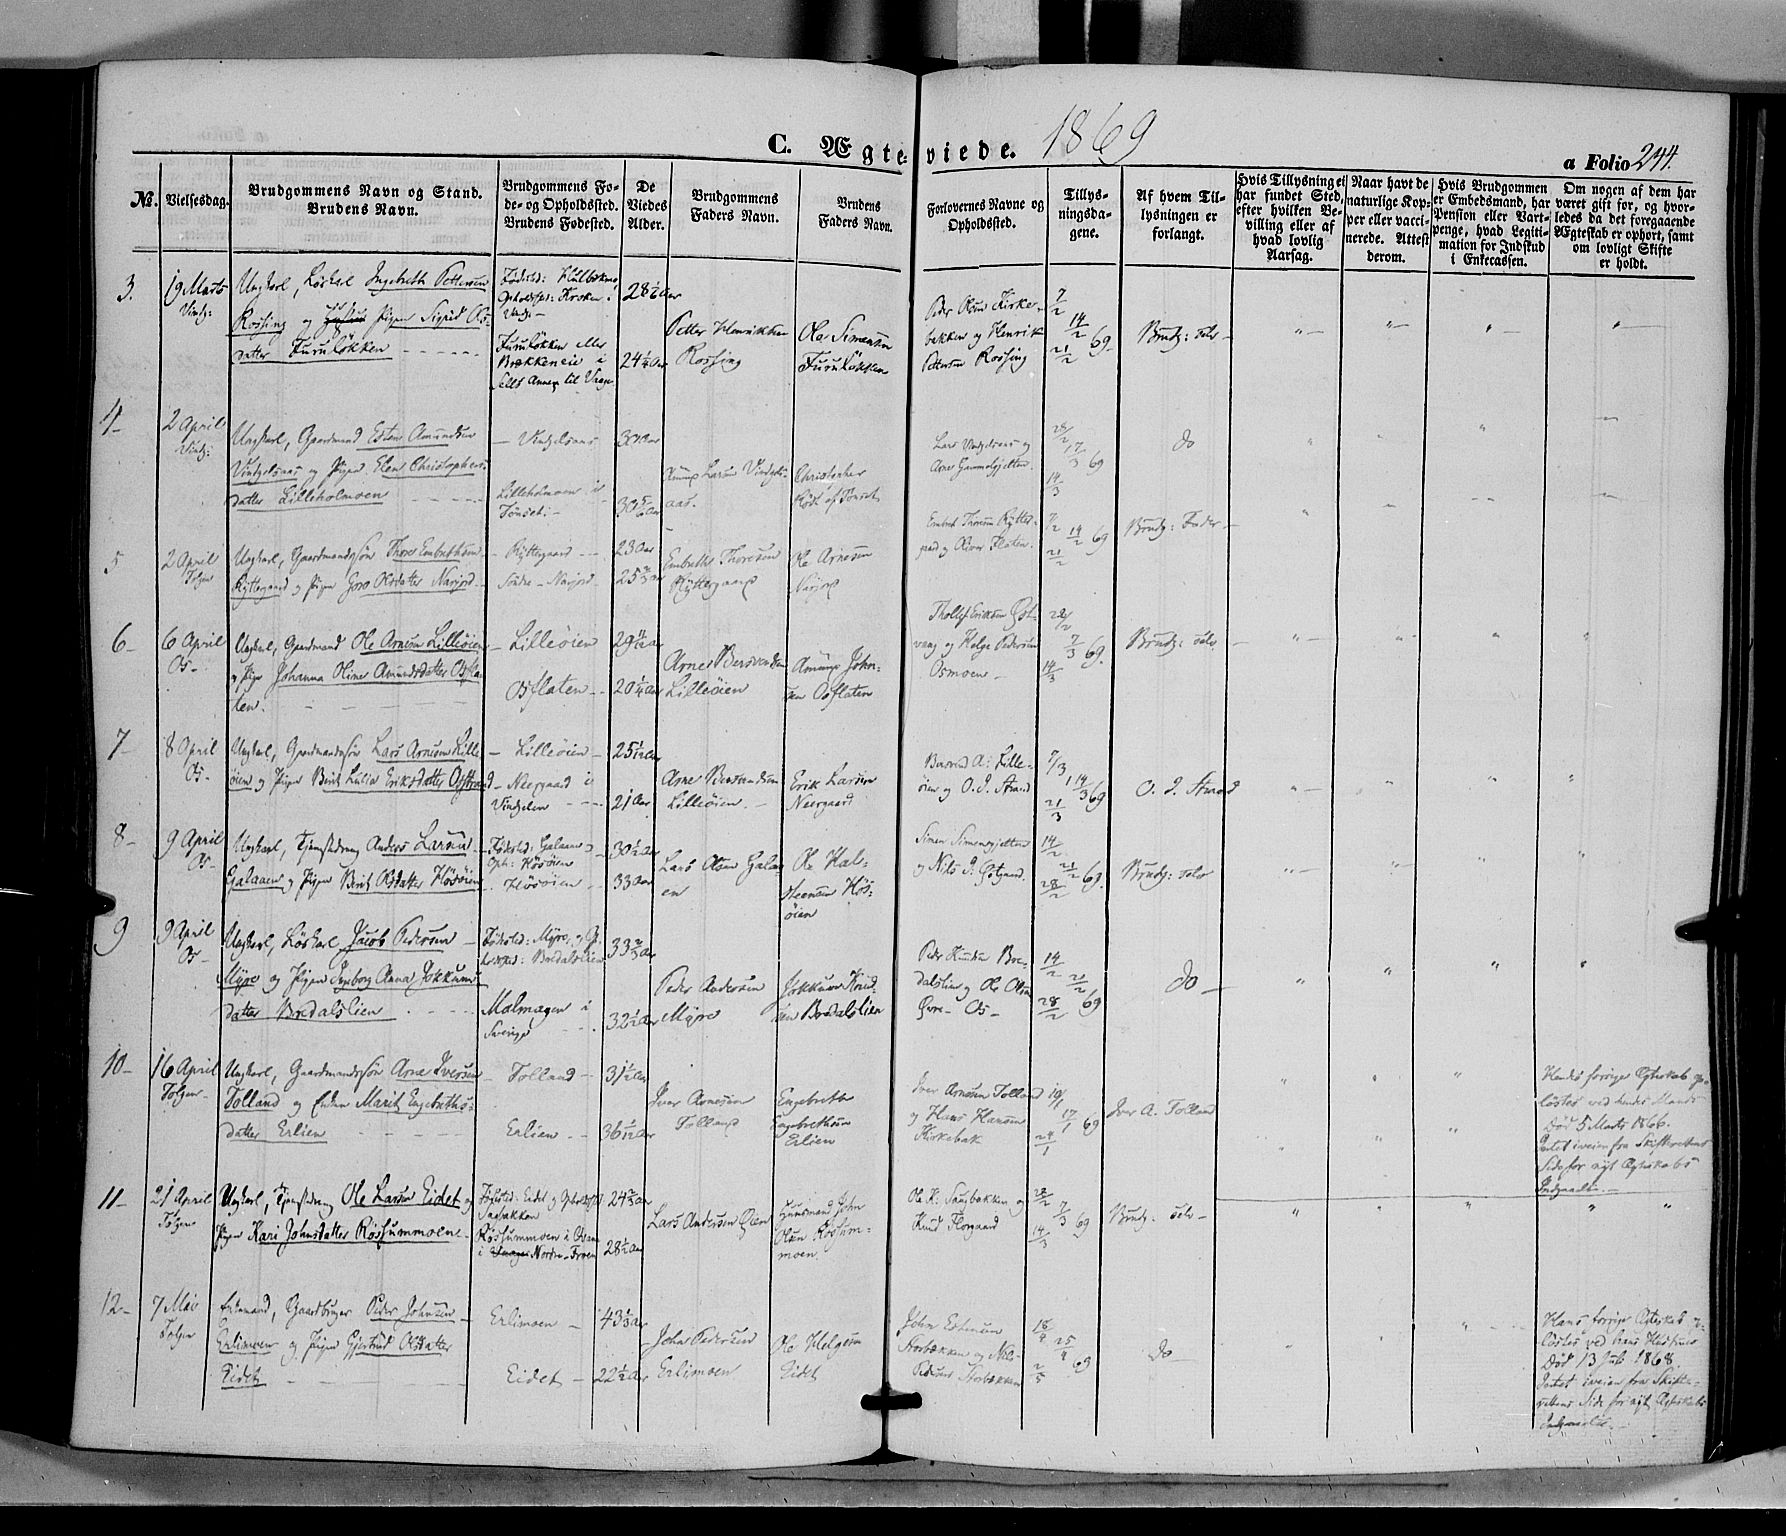 C. Ægteviede. 1869
a Folio 244.
№.
Vielsesdag.
Brudgommens Navn og Stand.
Brudens Navn.
Brudgommens Fo-
de- og Opholdssted.
Brudens Fødested.
De
Viedes
Alder.
Brudgommens
Faders Navn.
Brudens
Faders Navn.
Forlovernes Navne og
Opholdssted.
Tillys-
ningsda-
gene.
Af hvem Til-
lysningen er
forlangt.
Hvis Tillysning ei
har fundet Sted,
efter hvilken Be-
villing eller af
hvad lovlig
Aarsag.
Naar havt de
naturlige Kop-
per eller vacci-
nerede. Attest
derom.
Hvis Brudgommen
er Embedsmand, har
Pension eller Vart-
penge, hvad Legiti-
mation for Indskud
i Enkecassen.
Om nogen af dem har
været gift for, og hvor-
ledes da det foregaaende
Ægteskab er ophort, samt
om lovligt Skifte
er holdt.
3.
19 Marts
Ungkarl, Løskarl Ingebreth Pettersen
Rossing og Pigen Sigrid Ols-
datter Furuløkken
Opholdssted: Kroken i
Furuløkken
Sells Annex til Vaage
24¼ Aar
Petter Henriksen
Rossing
Ole Simensen
Furuløkken
Peder Olsen Kirke-
bakken og Henrik
Pettersen Rossing
7/2 14/2 21/2 69
Brudg: selv
4
2 April
Ungkarl, Gaardmand Esten Amundsen
Vingelsaas og Pigen Eleni Christophers-
datter Lilleholmoen
Vingelsaas
Lilleholmoen i
Tønset
30 Aar
Amund Larsen Vingels-
aas.
Christopher
af Tønset
Lars Vingelsaas og
Arne Gammelgjelten
28/2 7/3 69
14/3
do
5
2 April
Tolgen
Ungkarl, Gaardmandssøn Thore Embrethsen
Ryttergaard og Pigen Goro Olsdatter Narjord
Ryttergaard
Søndre Narjord
23 Aar
25⅔ Aar
Embreth Thoresen
Ryttergaard
Ole Arnesen
Narjord
Embret Thoresen Rytter-
gard og Oliver Floten
7/2 14/2 69
21/2
Brudg: Fader
6
6 April
Os
Ungkarl, Gaardmand Ole Arnesen Lilleøien
og Pige Johanna Oline Amundsdatter Osfla-
ten.
Lilleøien
Osflaten
20¼ Aar
Arne Bersvendsen
Lilleøien
Amund John-
sen Osflaten
Thollef Eriksen Øst-
vang og Helge Pedersen
Osmoen
28/2 7/3 69
14/3
Brudg: selv
7
8 April
Os
Ungkarl, Gaardmandssøn Lars Arnesen Lille-
øien og Pigen Berit Lulia Eriksdatter Osstrand
Lilleøien
Neergaard i
Vingelen
21 Aar
Arne Bersvendsen
Lilleøien
Erik Larsen
Neergaard
Bersvend A: Lille-
øien og O. J. Strand
7/3 14/3 69
21/3
O. J. Strand
8
9 April
Os
Ungkarl, Tjenestedreng Anders Larsen
Galaaen og Pigen Berit Olsdatter Høsøien
Fødested: Galaaen
Oph: Høsøien
Høsøien
30½ Aar
33 Aar
Lars Olsen Galaa-
en
Ole Hal-
steensen Høs-
øien
Simen Simensgjelten
og Nils J. Østgaard
14/2 21/2 69
28/2
Brudg: selv
9
9 April
Os
Ungkarl, Løskarl Jacob Pedersen
Myre og Pigen Ingeborg Anna Jokkums-
datter Bredalslien
Fødested: Myre, og Op-
holdssted: Bredalslien
Malmagen i
Sverige
33⅔ Aar
32½ Aar
Peder Andersen
Myre
Jokkum Knud-
sen Bredalslien
Peder Knudsen Bre-
dalslien og Ole Olsen
Øvre-Os
14/2 21/2 69
28/2
do
10
16 April
Tolgen
Ungkarl, Gaardmandssøn Arne Iversen
Tolland og Enken Marit Engebreths-
datter Erlien
Tolland
Erlien
31½ Aar
36 1/12 Aar
Iver Arnesen
Tolland
Engebreth
Engebrethsen
Erlien
Iver Arnesen Tolland
og Hans Hansen
Kirkebak
10/1 17/1 69
24/1
Iver A. Tolland
Hendes forrige Ægteskab op-
løstes ved hendes Mands
Død 5 Marts 1866.
Intet iveien fra Skifterettens
Side for nyt Ægteskabs
Indgaaelse.
11
21 April
Tolgen
Ungkarl, Tjenestedreng Ole Larsen Eidet og
Pigen Kari Johnsdatter Røssummoen
Fødested: Eidet og Opholdssted
Røssummoen
i Nordre-Froen
24⅔ Aar
28½ Aar
Lars Andersen Øien
Huusmand John
Olsen Røssum-
moen
Ole K: Sansbakken og
Knud Florgaard
28/2 7/3 69
14/3
Brudg: selv
12
7 Mai
Tolgen
Enkemand, Gaardbruger Peder Johnsen
Erlimoen og Pigen Gjertrud Olsdatter
Eidet
Erlimoen
Eidet
43⅓ Aar
22½ Aar
John Pedersen
Erlimoen
Ole Helgesen
Eidet
John Estensen
Storbækken og Nils
Pedersen Storbækken
18/4 25/4 69
2/5
do
Hans forrige Ægteskab op-
løstes ved hans Hustrues
Død 13 Juli 1868.
Intet iveien fra Skifte-
rettens Side for nyt Ægteskabs
Indgaaelse.